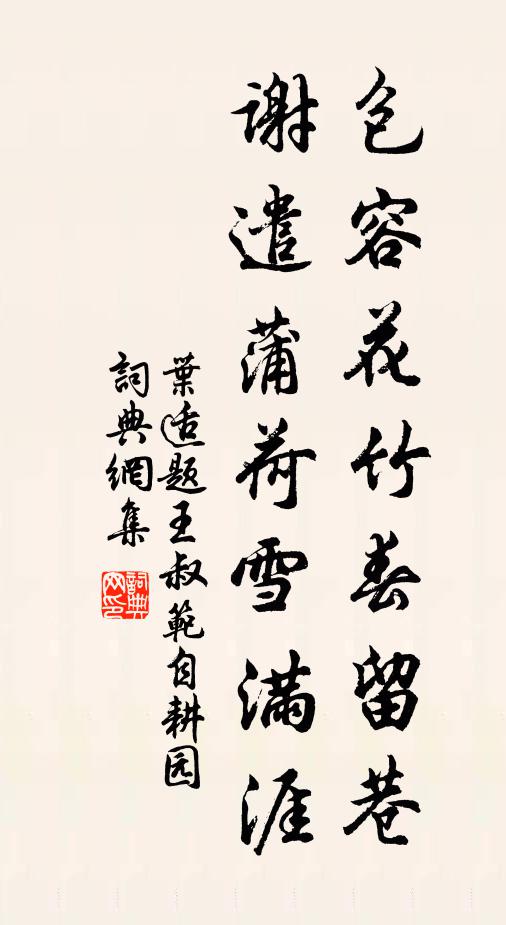 包容花竹春留巷
谢遣蒲荷雪满涯
葉适题王叔範自耕园
詞典網集
詞典网印